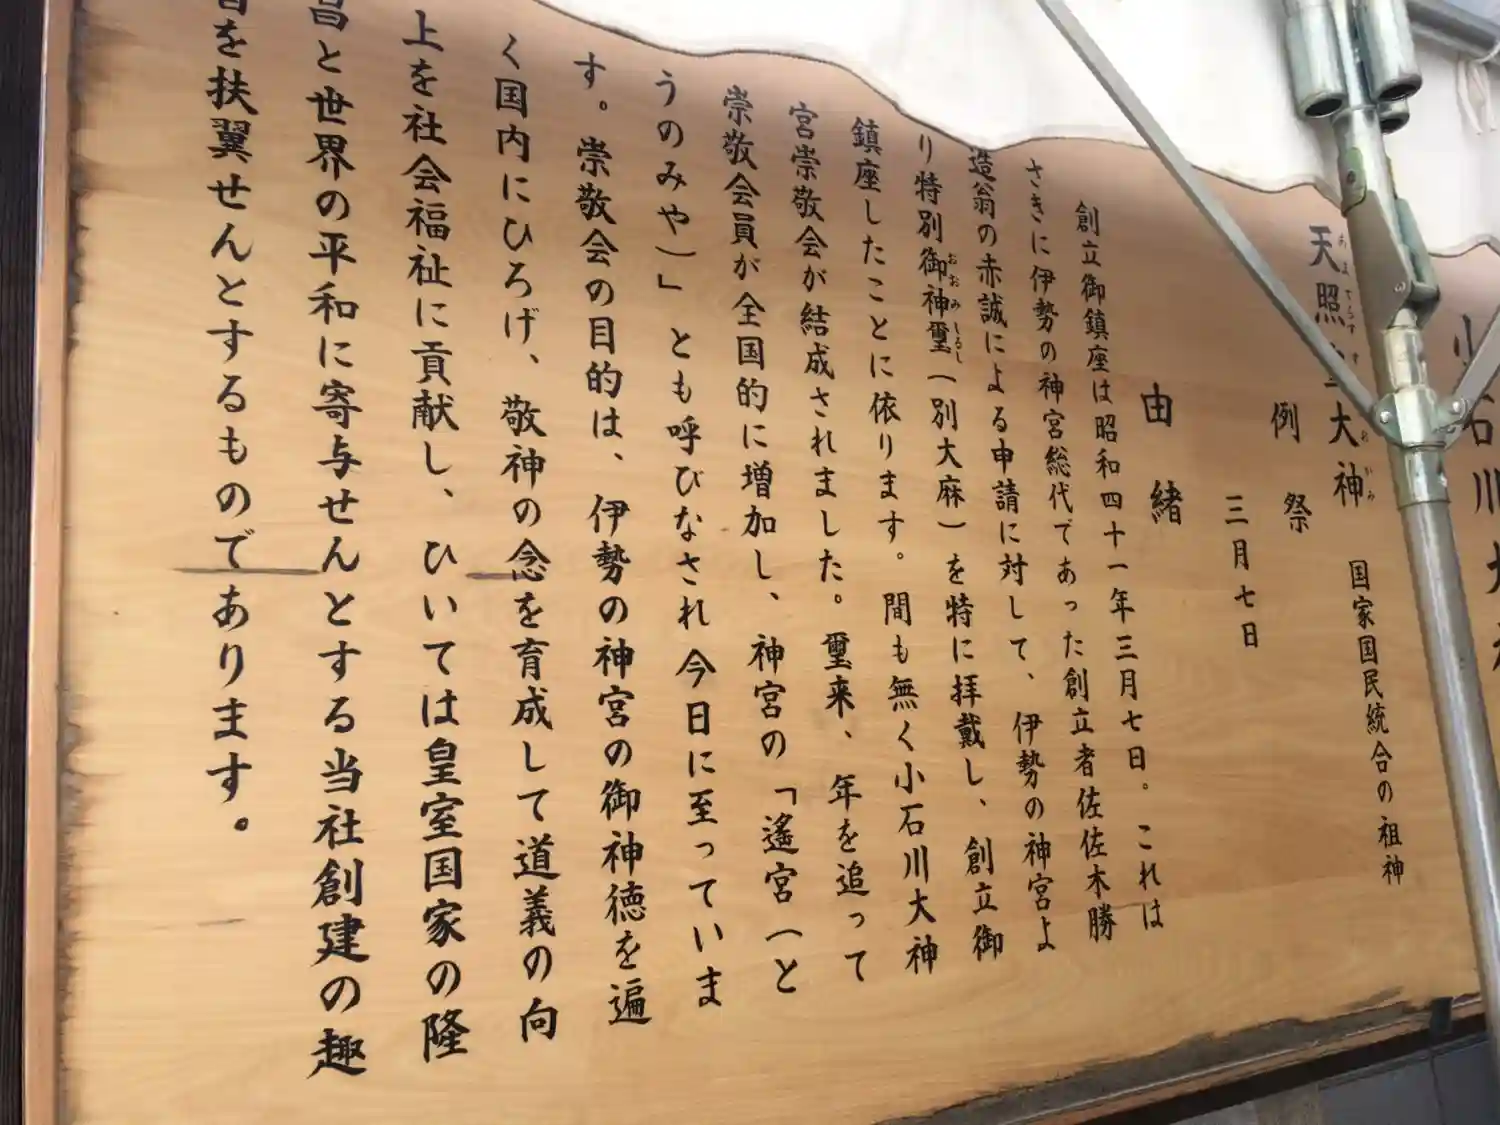 小石川大神
天照皇大神 国家国民統合の祖神
例祭
三月七日
由緒
創立御鎮座は昭和四十一年三月七日。これは
さきに伊勢の神宮総代であった創立者佐佐木勝
造翁の赤誠による申請に対して、伊勢の神宮よ
り特別御神璽(別大麻)を特に拝戴し、創立御
鎮座したことに依ります。間も無く小石川大神
宮崇敬会が結成されました。璽来、年を追って
崇敬会員が全国的に増加し、神宮の「遙宮(と
うのみや)」とも呼びなされ今日に至っていま
す。崇敬会の目的は、伊勢の神宮の御神徳を遍
く国内にひろげ、敬神の念を育成して道義の向
上を社会福祉に貢献し、ひいては皇室国家の隆
昌と世界の平和に寄与せんとする当社創建の趣
旨を扶翼せんとするものであります。